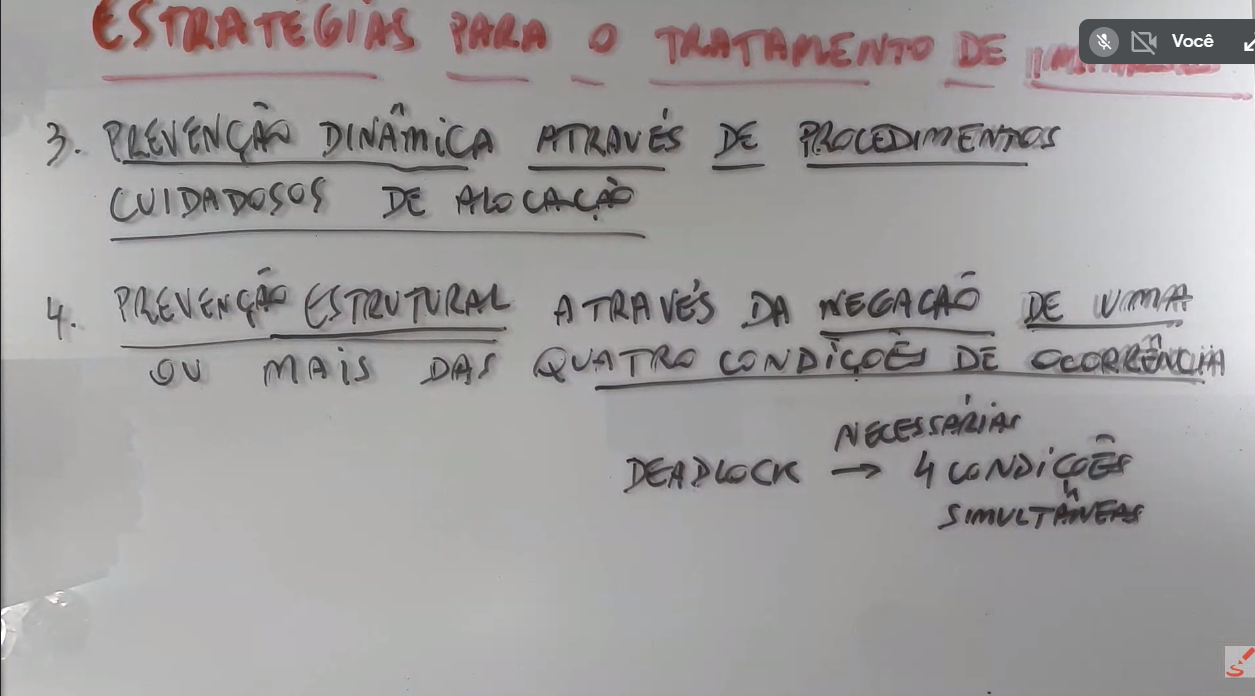 ESTRATÉGIAS PARA O TRATAMENTO DE
Você
3. PREVENÇÃO DINÂMICA ATRAVÉS DE PROCEDIMENTOS
CUIDADOSOS DE ALOCAÇÃO
4. PREVENÇÃO ESTRUTURAL ATRAVÉS DA NEGAÇÃO DE UMA
OU MAIS DAS QUATRO CONDIÇÕES DE OCORRÊNCIA
NECESSÁRIAS
DEADLOCK → 4 CONDIÇÕES
SIMULTÂNEAS